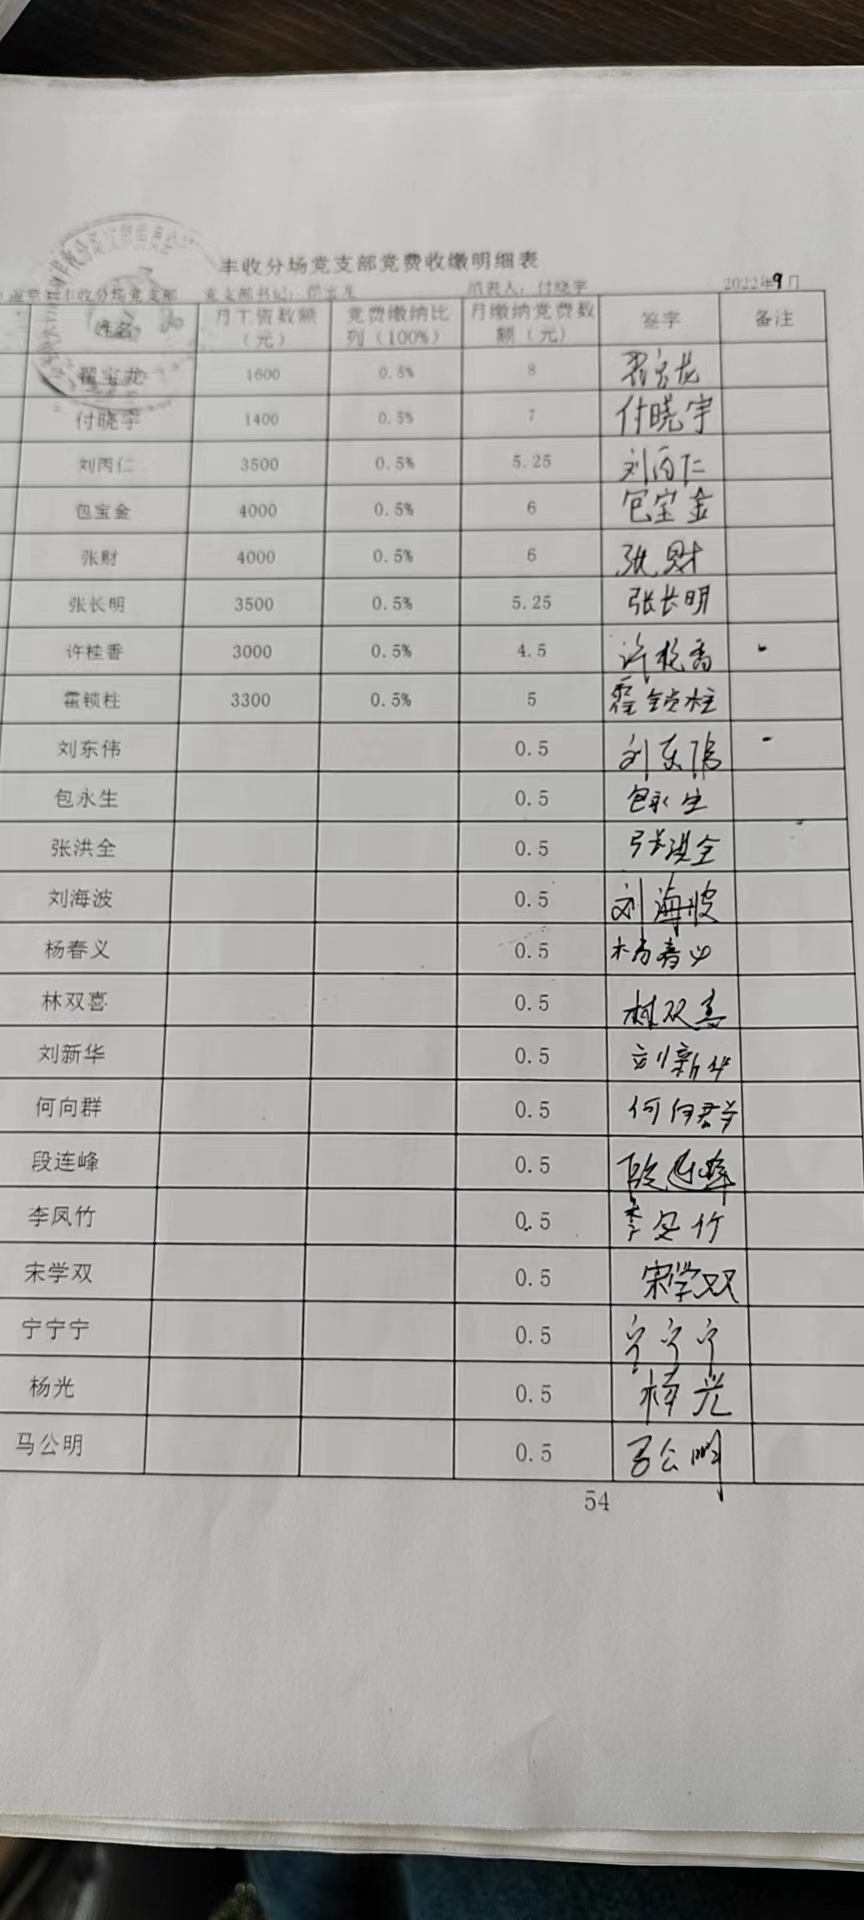 丰收分场党支部党费收缴明细表
收分场党支部 党支部书记： 填表人：付晓宇 2022年9月
姓名 月工资数额（元） 党费缴纳比列（100%） 月缴纳党费数额（元） 签字 备注
翟宝龙 1600 0.5% 8 翟宝龙
付晓宇 1400 0.5% 7 付晓宇
刘丙仁 3500 0.5% 5.25 刘丙仁
包宝金 4000 0.5% 6 包宝金
张财 4000 0.5% 6 张财
张长明 3500 0.5% 5.25 张长明
许桂香 3000 0.5% 4.5 许桂香
霍锁柱 3300 0.5% 5 霍锁柱
刘东伟 0.5 刘东伟
包永生 0.5 包永生
张洪全 0.5 张洪全
刘海波 0.5 刘海波
杨春义 0.5 杨春义
林双喜 0.5 林双喜
刘新华 0.5 刘新华
何向群 0.5 何向群
段连峰 0.5 段连峰
李凤竹 0.5 李凤竹
宋学双 0.5 宋学双
宁宁宁 0.5 宁宁宁
杨光 0.5 杨光
马公明 0.5 马公明
54